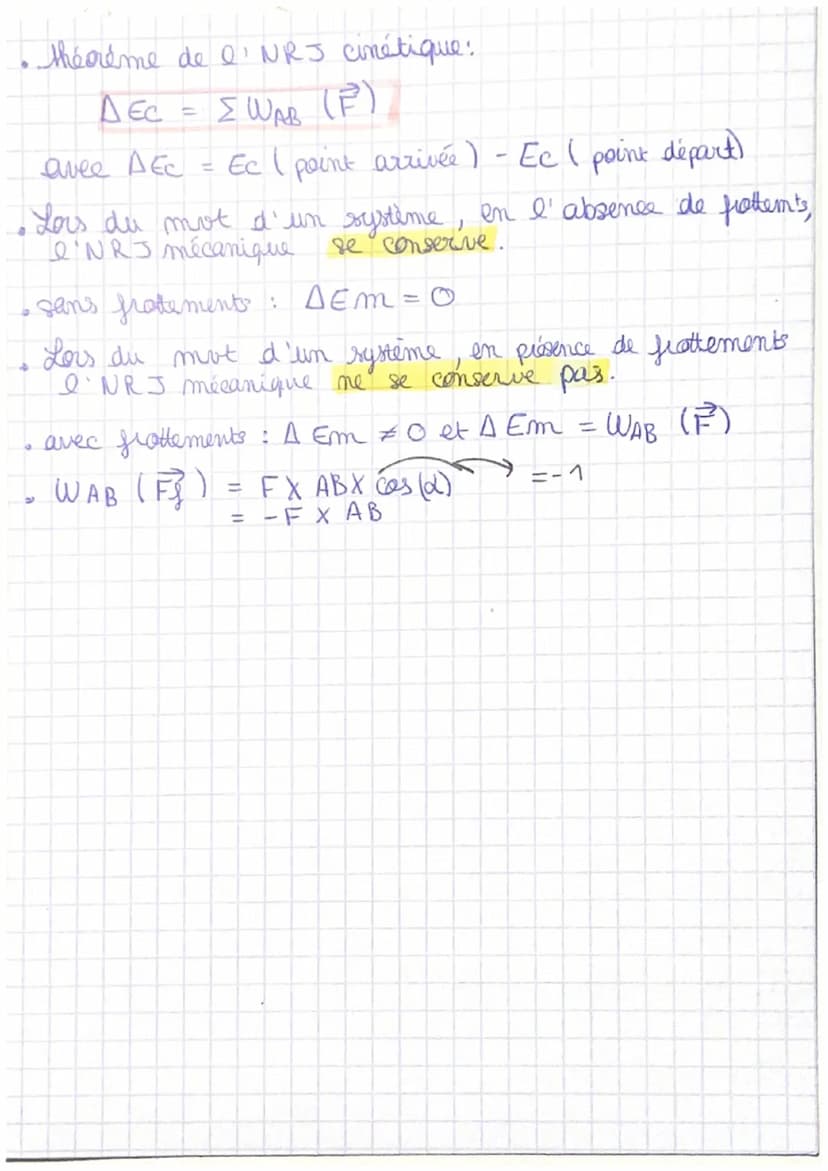 • théorème de l'NRJ cinétique:
ΔEc = Σ WAB (F⃗)
avec ΔEc = Ec ( point arrivée ) - Ec ( point départ)
• Lors du mvt d'un système, en l'absence de frottemts,
l'NRJ mécanique se conserve.
• sans frotements : ΔEm = 0
• Lors du mvt d'un système, en présence de frottements
l'NRJ mécanique ne se conserve pas.
• avec frottements : Δ Em ≠ 0 et Δ Em = WAB (F⃗)
• WAB (F⃗f) = F X AB X cos(α) → = -1
= -F X AB